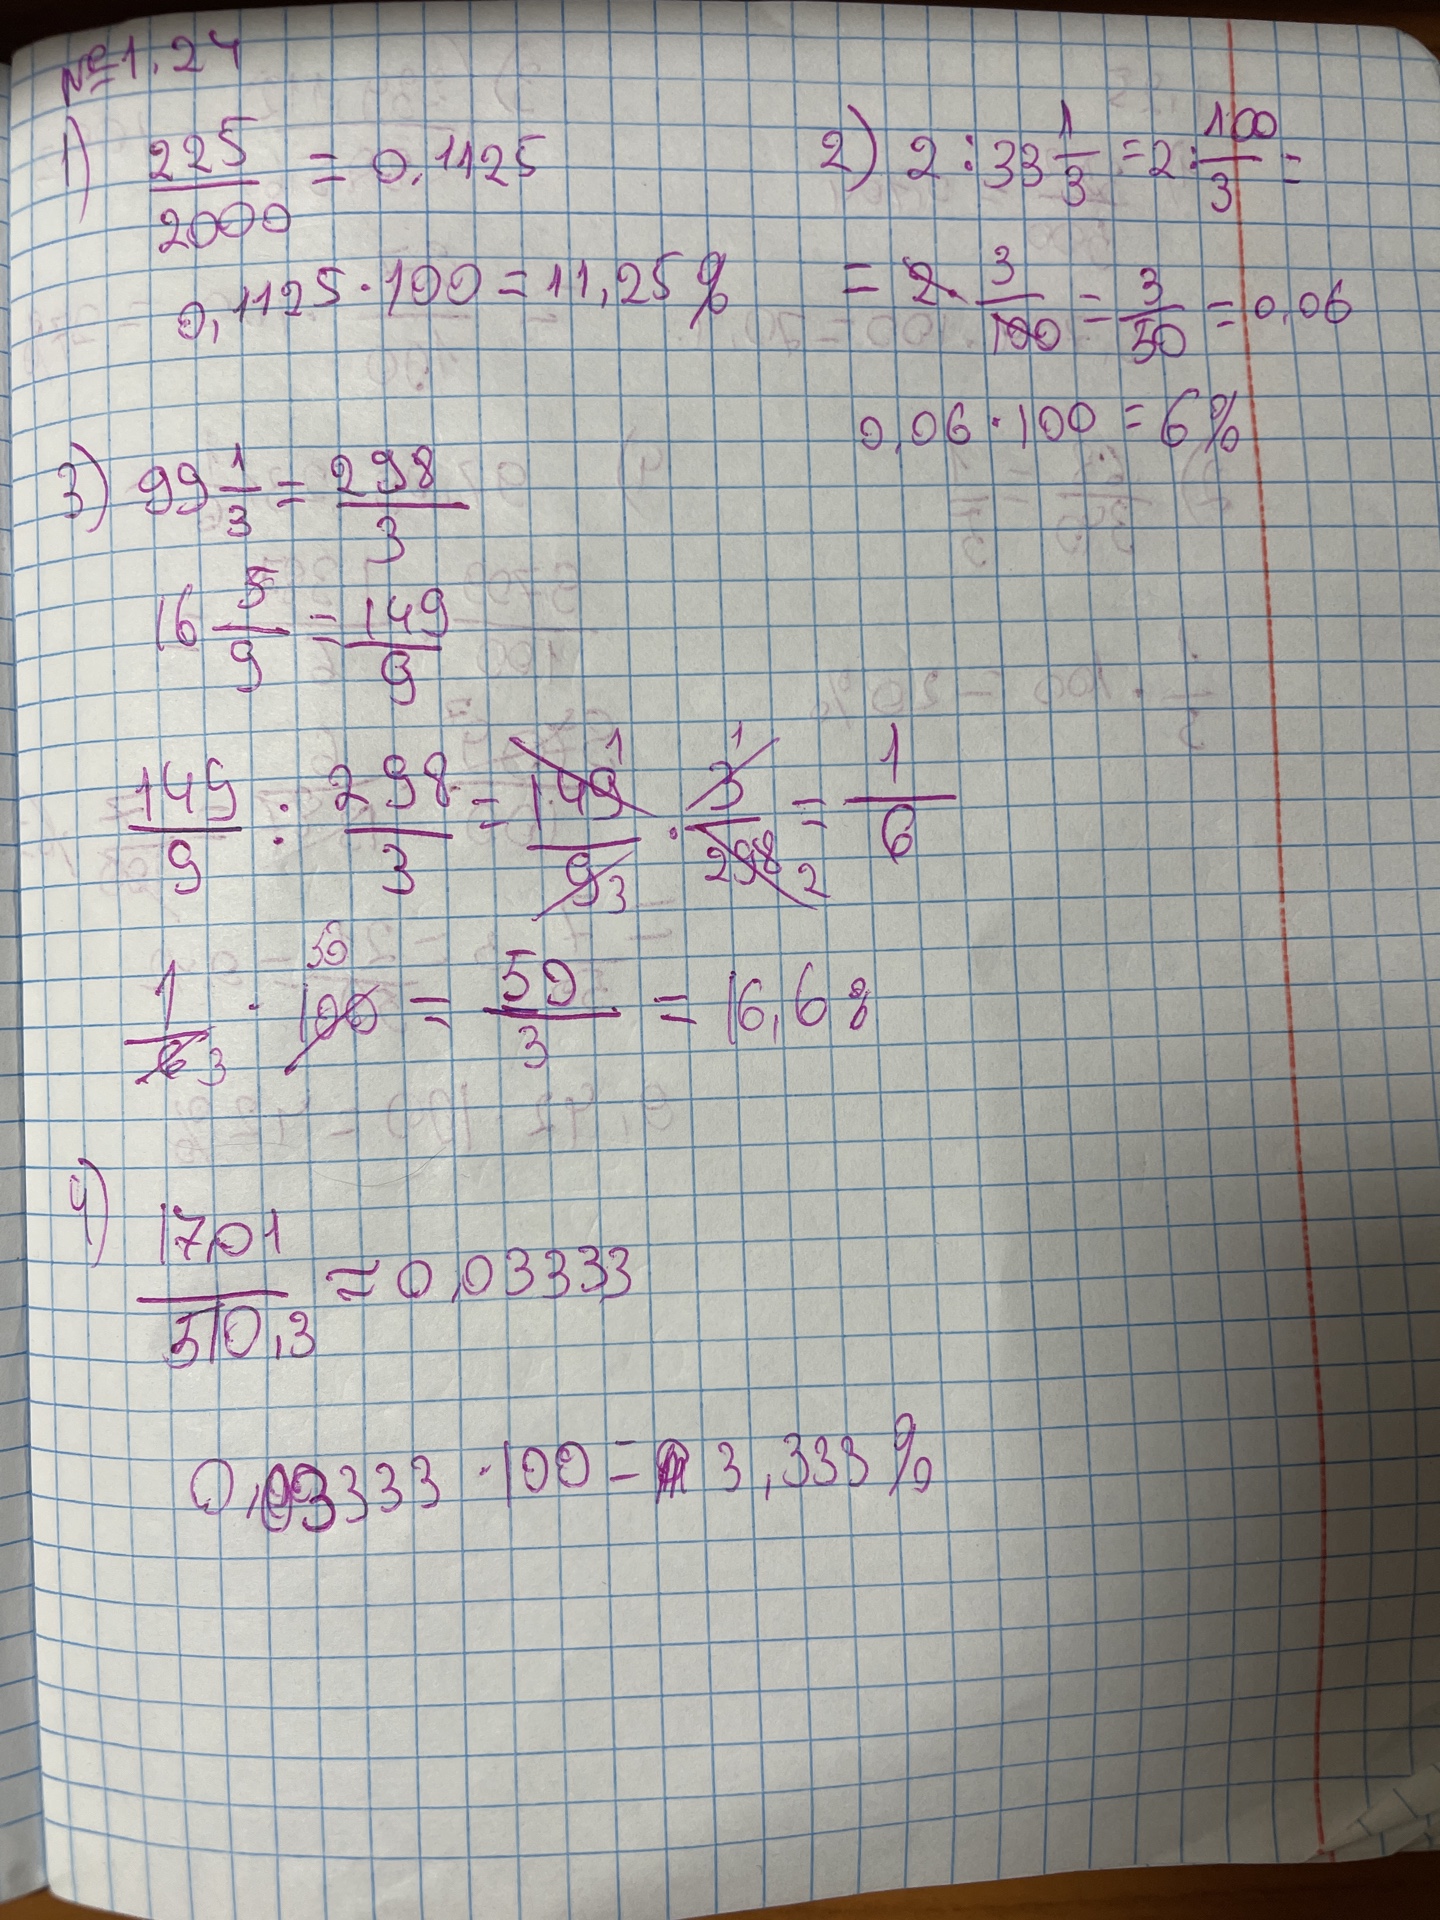 №1.24
1) 225/2000 = 0,1125
0,1125 · 100 = 11,25 %
2) 2 : 33 1/3 = 2 : 100/3 =
= 2 · 3/100 = 3/50 = 0,06
0,06 · 100 = 6 %
3) 99 1/3 = 298/3
16 5/9 = 149/9
149/9 : 298/3 = 149 1/9 3 · 3 1/298 2 = 1/6
1/6 3 · 100 50 = 50/3 = 16,6 %
4) 17,01/510,3 ≈ 0,03333
0,03333 · 100 = 3,333 %